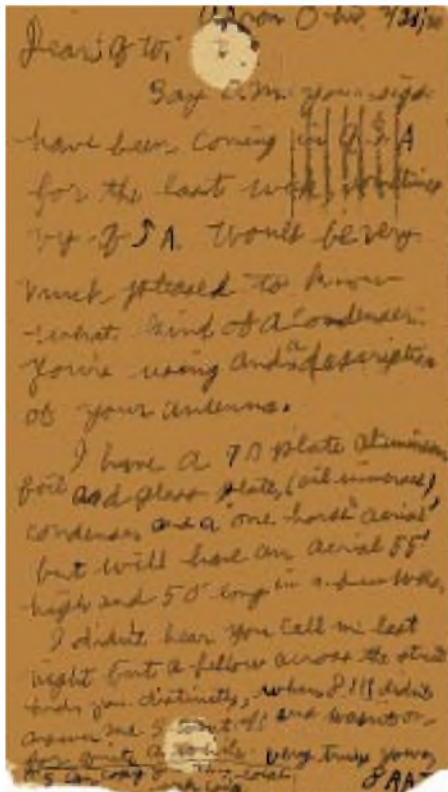 Akron O hio. 7/21/20
Dear: 8 to;
Say O.M. your sigs
have been coming in Q S A
for the last week, sometimes
vy. Q S A. Would be very
much pleased to know
what kind of a condenser
you're using and a description
of your antenna.
I have a 70 plate aluminum
foil and glass plate, (oil immersed)
condenser and a "one horse" aerial
but will have an aerial 55'
high and 50' long in a few weeks.
I didn't hear you call me last
night but a fellow across the street
you distinctly, when 8 didn't
answer me I and wasn't on
for quite a while. very truly yours,
this